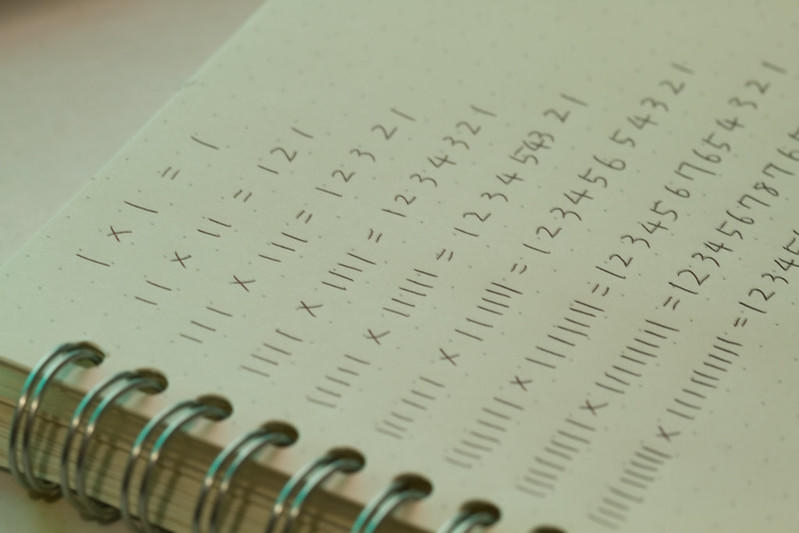 1 x 1 = 1
11 x 11 = 121
111 x 111 = 12321
1111 x 1111 = 1234321
11111 x 11111 = 123454321
111111 x 111111 = 12345654321
1111111 x 1111111 = 1234567654321
11111111 x 11111111 = 1234567876
111111111 x 111111111 = 12345